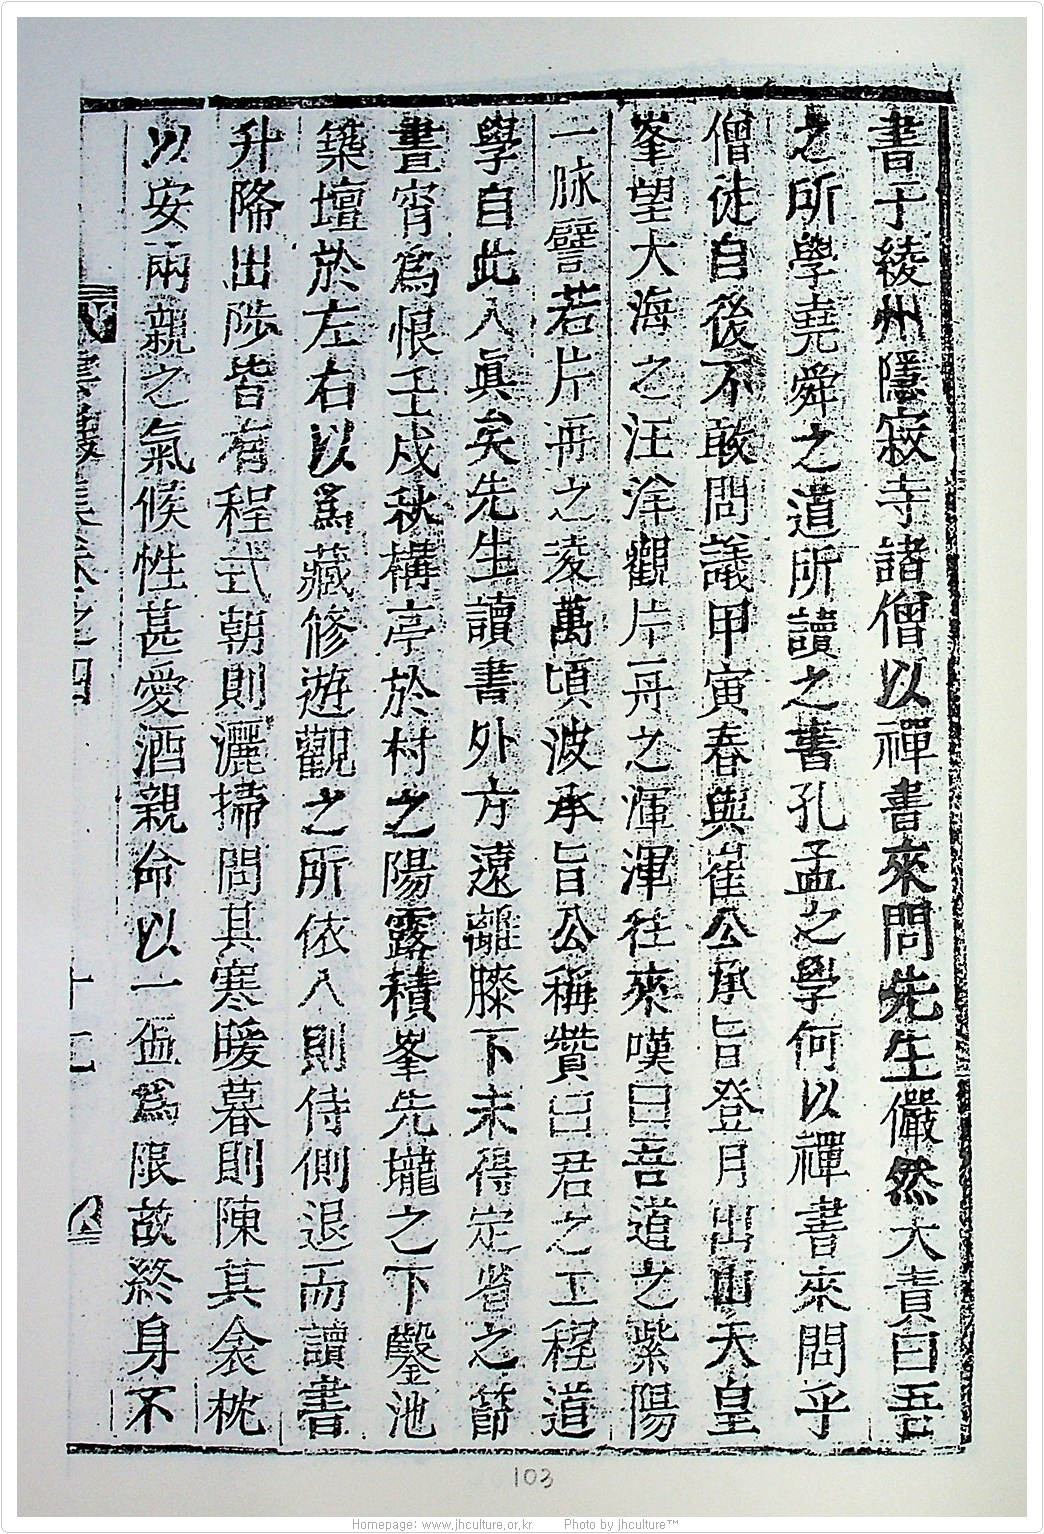 書于綾州隱寂寺諸僧以禪書來問先生儼然大責曰吾
之所學堯舜之道所讀之書孔孟之學何以禪書來問乎
僧徒自後不敢問議甲寅春與崔公承旨登月出山天皇
峯望大海之汪洋觀片舟之渾渾往來嘆曰吾道之紫陽
一脉譬若片舟之凌萬頃波承旨公稱贊曰君之工程道
學自此入眞矣先生讀書外方遠離膝下未得定省之節
晝宵爲恨壬戌秋構亭於村之陽露積峯先壠之下鑿池
築壇於左右以爲藏修遊觀之所依入則侍側退而讀書
升降出陟皆有程式朝則灑掃問其寒暖暮則陳其衾枕
以安兩親之氣候性甚愛酒親命以一盃爲限故終身不
集卷之四
十二
103
Homepage: www.jhculture.or.kr Photo by jhculture™